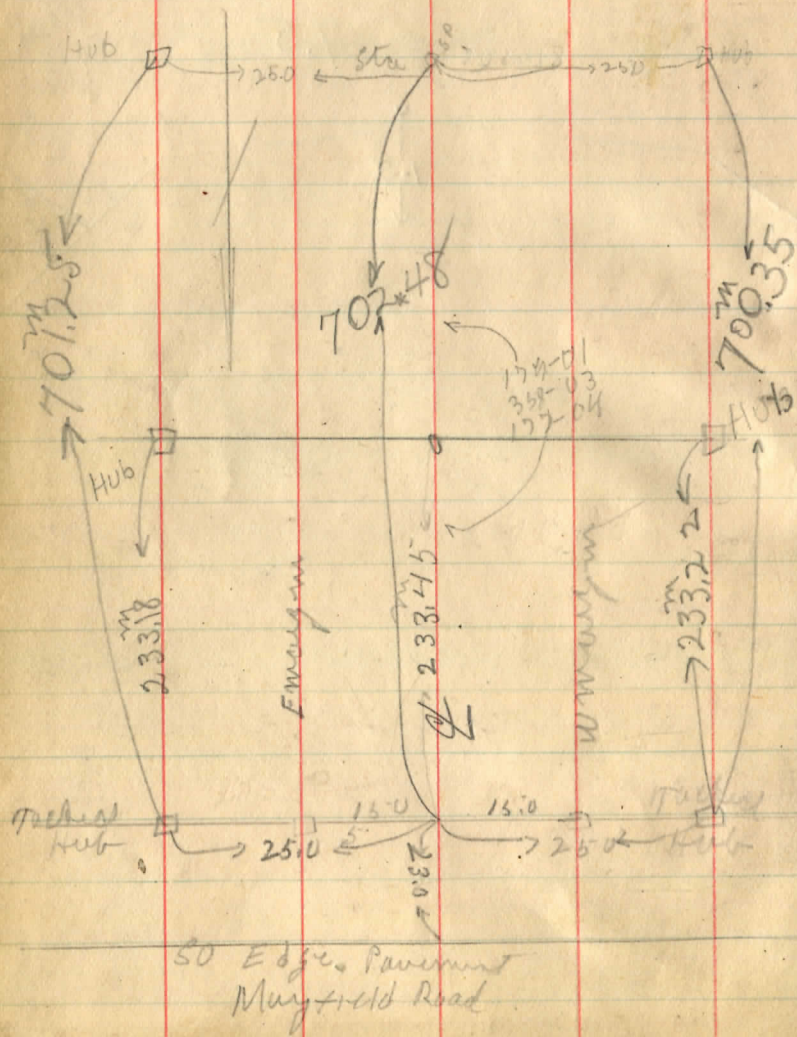 Hub
25.0
Sta
50
25.0
Hub
m
701.25
702.48
m
700.35
359-03
177-04
Hub
Hub
m
233.18
E margin
m
233.45
℄
W margin
m
233.22
Tacked
Hub
15.0
15.0
Tacked
Hub
25.0
25.0
23.0
SO Edge. Pavement
Mayfield Road